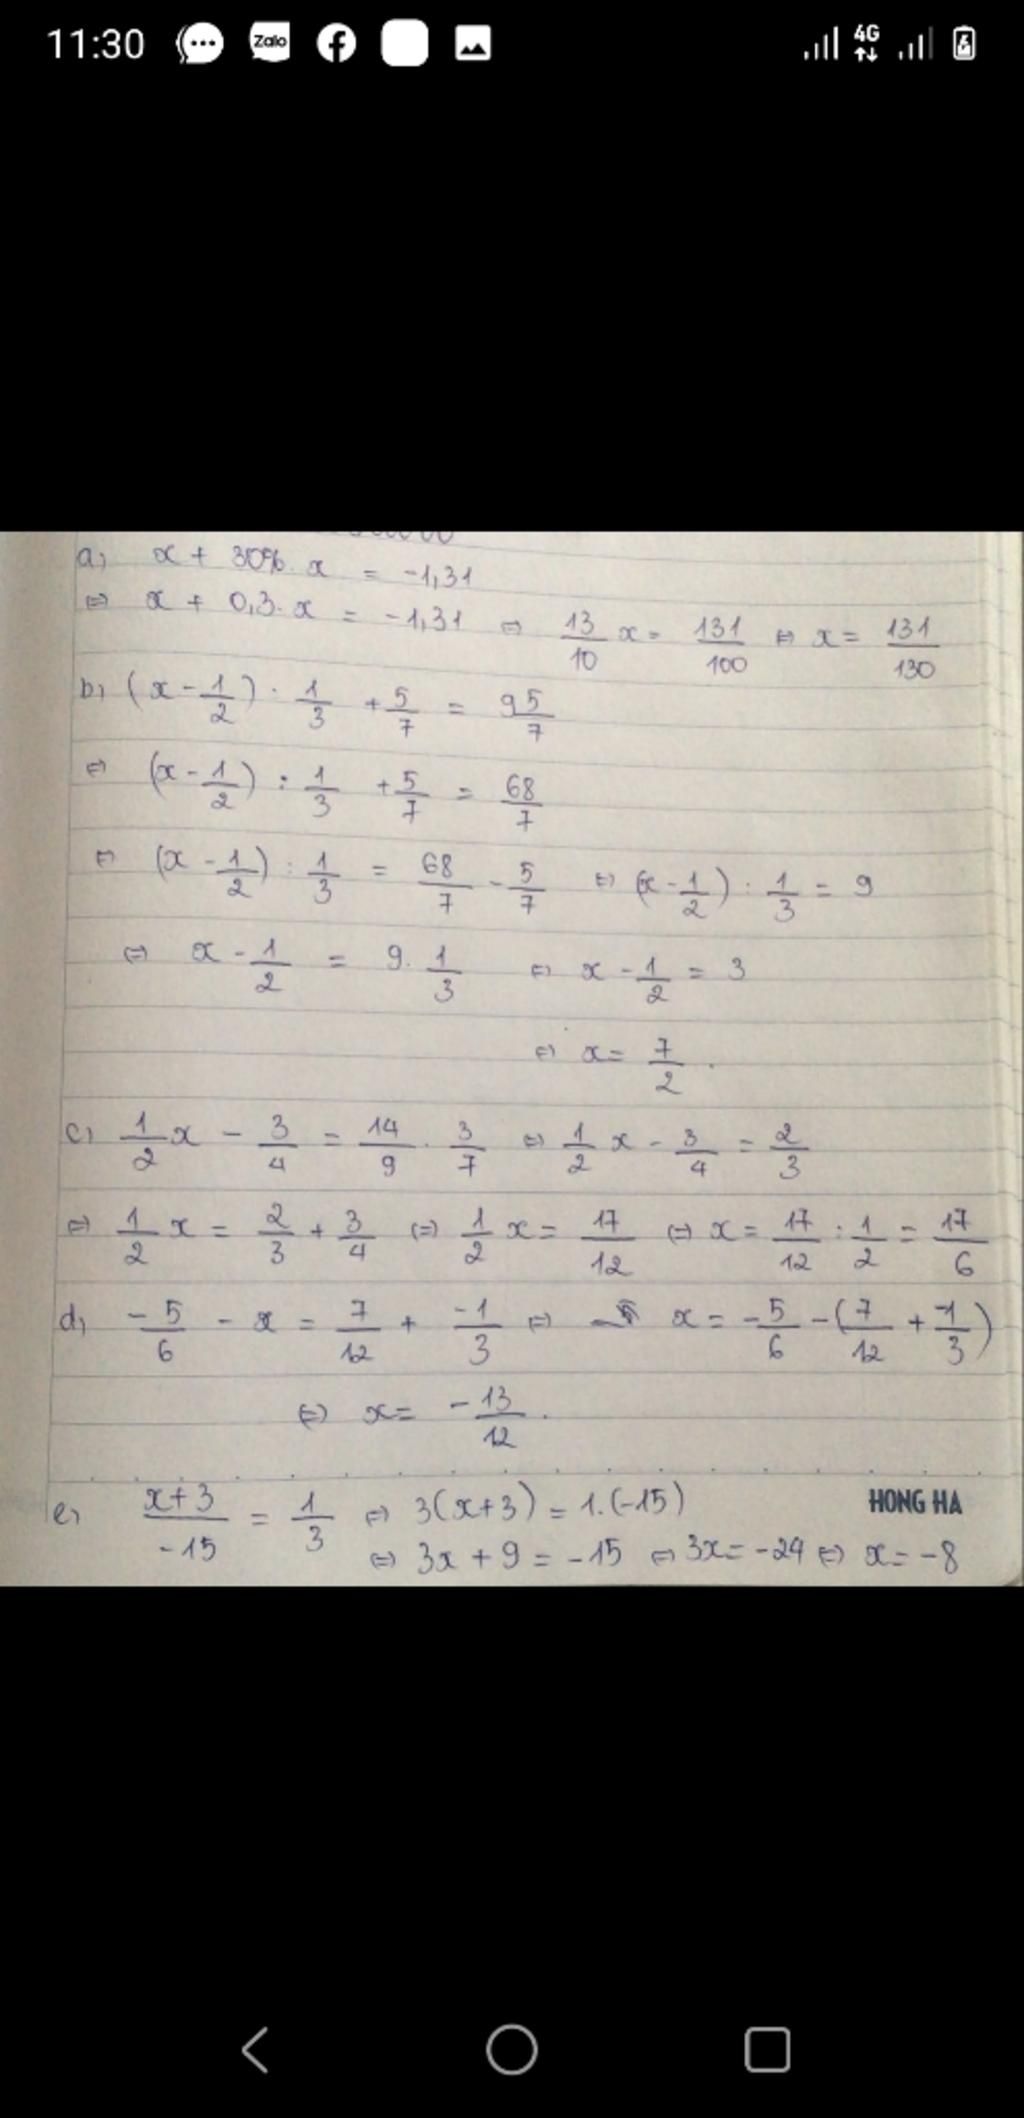 11:30 Zalo 4G
a, x + 30%. x = -1,31
⇔ x + 0,3. x = -1,31 ⇔ 13/10 x = 131/100 ⇔ x = 131/130
b, (x - 1/2) : 1/3 + 5/7 = 9 5/7
⇔ (x - 1/2) : 1/3 + 5/7 = 68/7
⇔ (x - 1/2) : 1/3 = 68/7 - 5/7 ⇔ (x - 1/2) : 1/3 = 9
⇔ x - 1/2 = 9. 1/3 ⇔ x - 1/2 = 3
⇔ x = 7/2.
c, 1/2 x - 3/4 = 14/9 . 3/7 ⇔ 1/2 x - 3/4 = 2/3
⇔ 1/2 x = 2/3 + 3/4 ⇔ 1/2 x = 17/12 ⇔ x = 17/12 : 1/2 = 17/6
d, -5/6 - x = 7/12 + -1/3 ⇔ x = -5/6 - (7/12 + -1/3)
⇔ x = -13/12.
e, x+3/-15 = 1/3 ⇔ 3(x+3) = 1.(-15)
HONG HA
⇔ 3x + 9 = -15 ⇔ 3x = -24 ⇔ x = -8